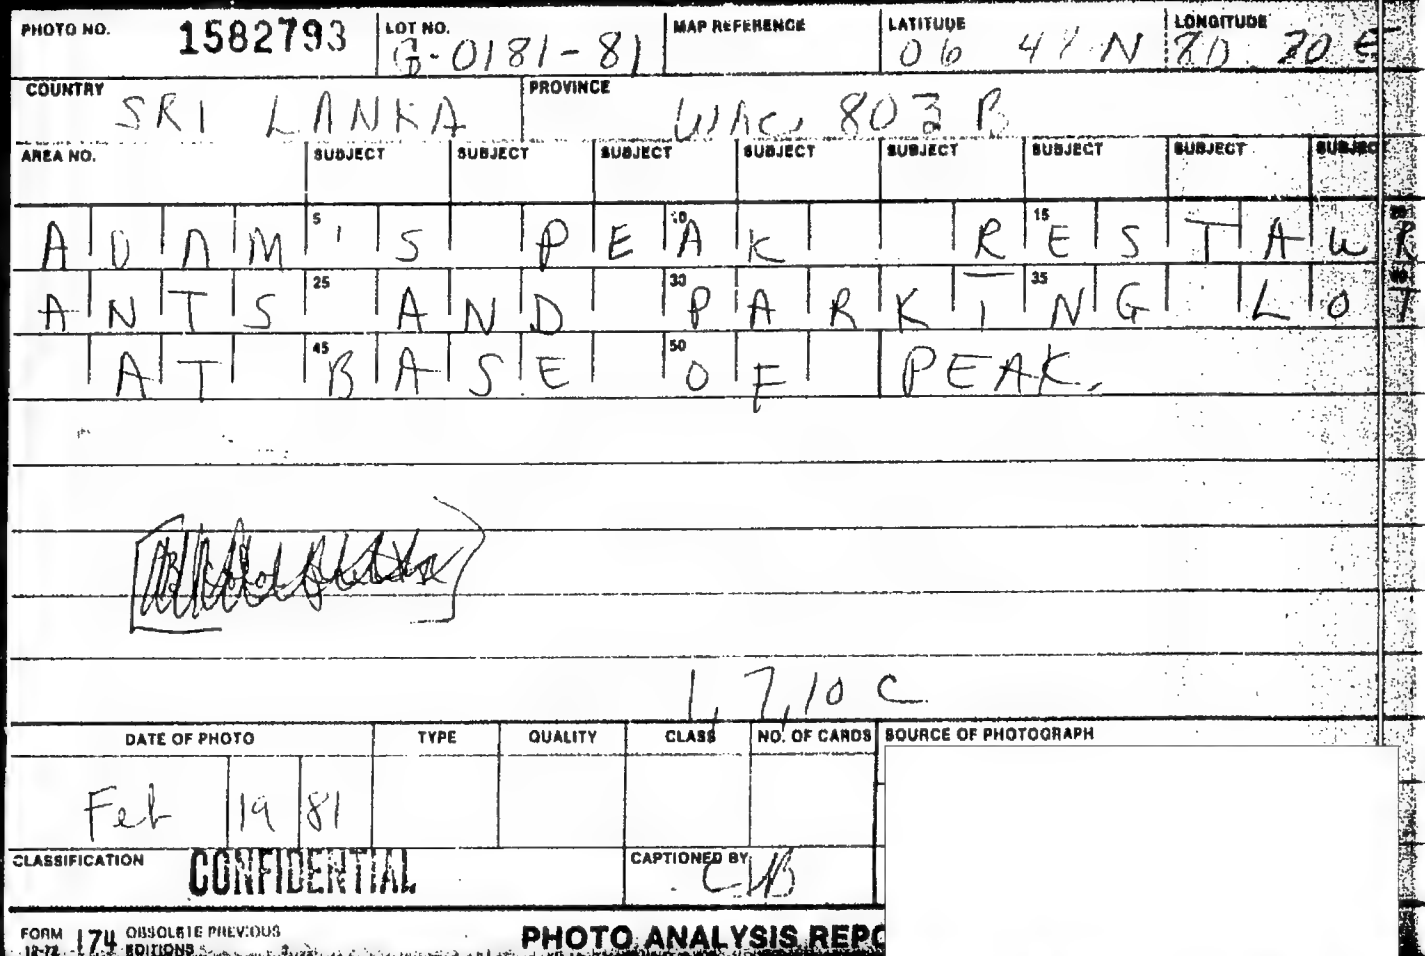 PHOTO NO. 1582793 LOT NO. G-0181-81 MAP REFERENCE LATITUDE 06 47 N LONGITUDE 80 20 E
COUNTRY SRI LANKA PROVINCE WAC, 803 B
AREA NO. SUBJECT SUBJECT SUBJECT SUBJECT SUBJECT SUBJECT SUBJECT SUBJECT
ADAM'S PEAK RESTAUR
ANTS AND PARKING LOT
AT BASE OF PEAK.
1, 7, 10 C
DATE OF PHOTO TYPE QUALITY CLASS NO. OF CARDS SOURCE OF PHOTOGRAPH
Feb 19 81
CLASSIFICATION CONFIDENTIAL CAPTIONED BY
FORM 12-72 174 OBSOLETE PREVIOUS EDITIONS PHOTO ANALYSIS REPO